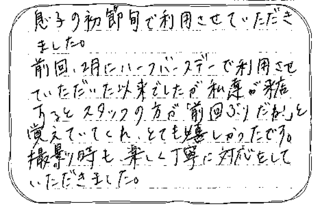 息子の初節句で利用させていただき
ました。
前回、2月にハーフバースデーで利用させ
ていただいた以来でしたが私達が来店
するとスタッフの方が「前回ぶりだね!」と
覚えていてくれ、とても嬉しかったです。
撮影時も楽しく丁寧に対応をして
いただきました。